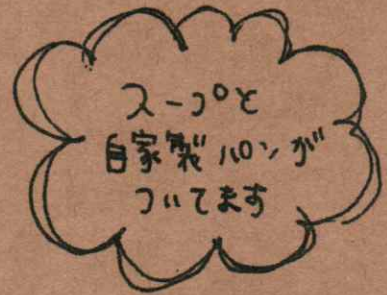 スープと
自家製パンが
ついてます